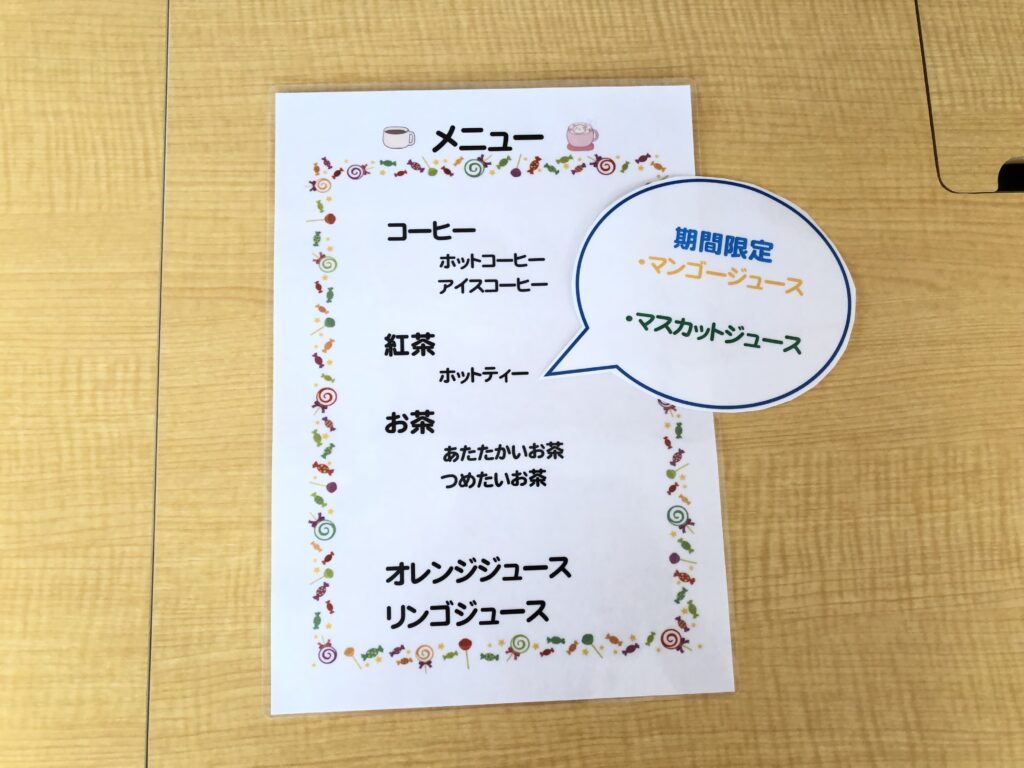 メニュー
コーヒー
ホットコーヒー
アイスコーヒー
紅茶
ホットティー
お茶
あたたかいお茶
つめたいお茶
オレンジジュース
リンゴジュース
期間限定
・マンゴージュース
・マスカットジュース